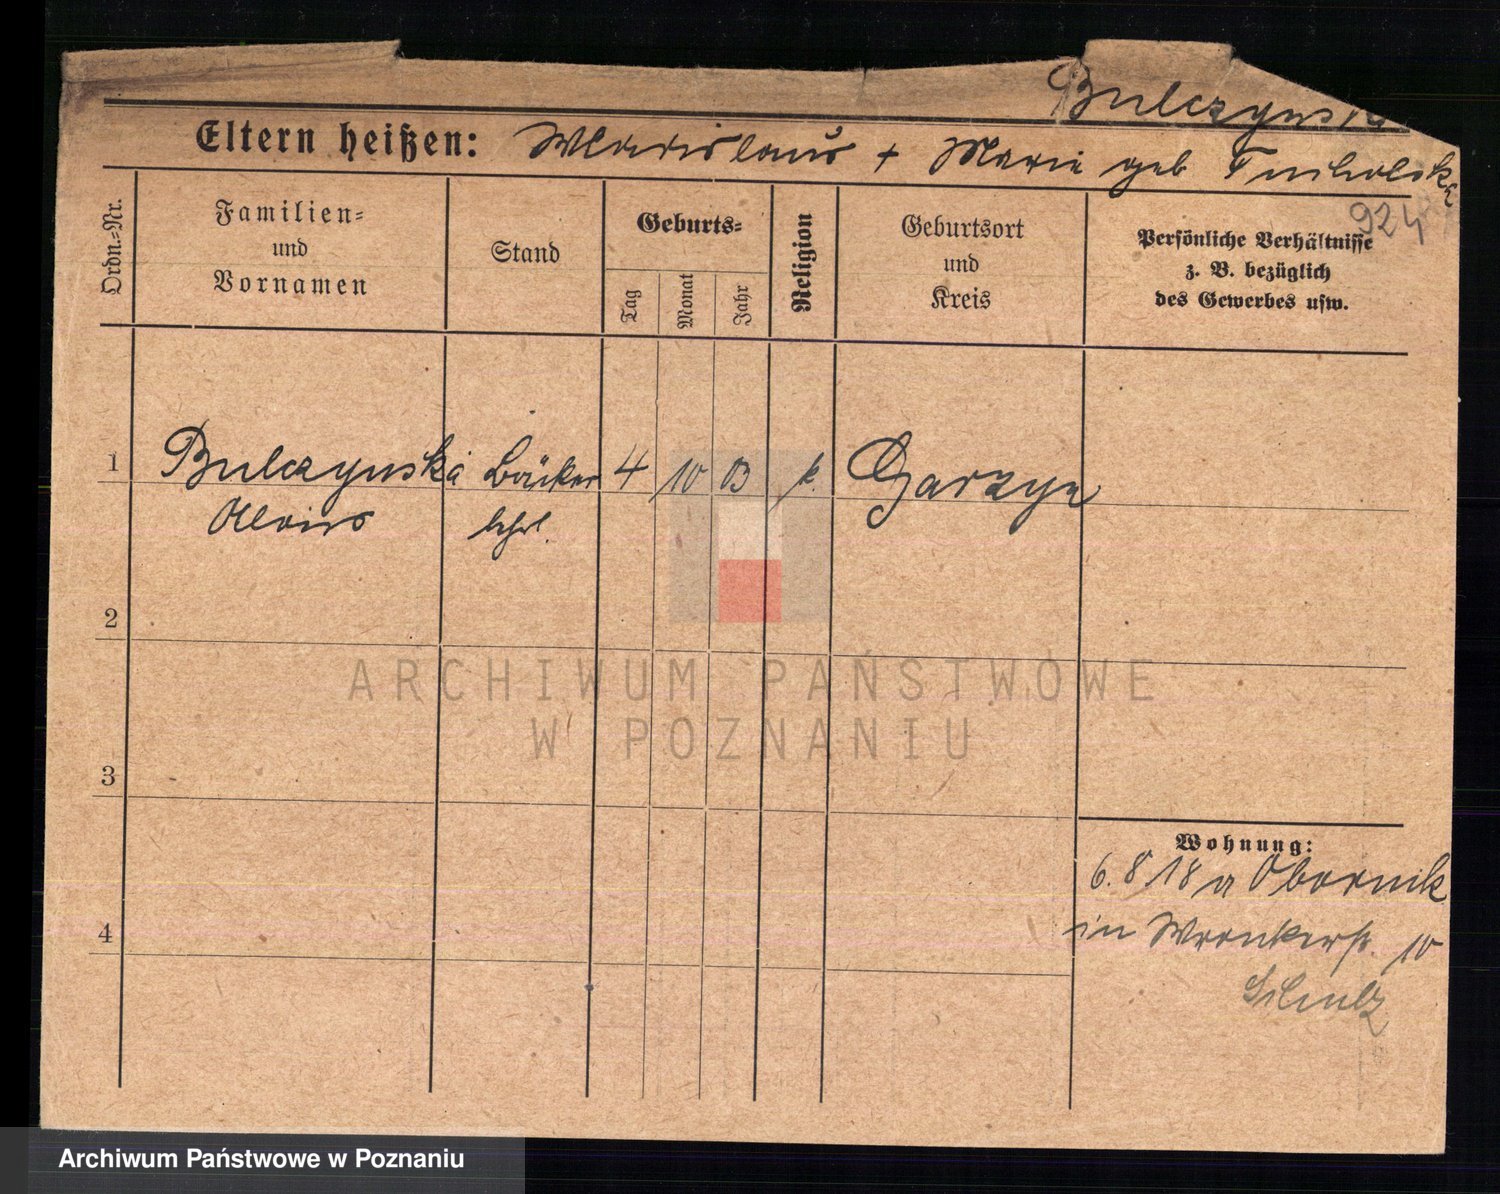 Bulczynski
Eltern heißen: Wladislaus + Marie geb Tucholska
924
Ordn.=Nr.
Familien=
und
Vornamen
Stand
Geburts=
Tag
Monat
Jahr
Religion
Geburtsort
und
Kreis
Persönliche Verhältnisse
z. B. bezüglich
des Gewerbes usw.
1 Bulczynski Bäcker 4 10 03 k.
Alois lehrl.
2
3
4
Wohnung:
6. 8 18 a Obornik
in Wronkerstr. 10
ARCHIWUM PAŃSTWOWE
W POZNANIU
Archiwum Państwowe w Poznaniu